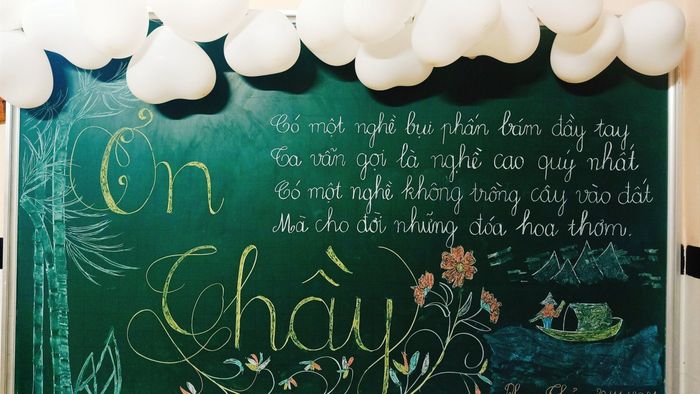 Ơn
Thầy
Có một nghề bụi phấn bám đầy tay
Ta vẫn gọi là nghề cao quý nhất
Có một nghề không trồng cây vào đất
Mà cho đời những đóa hoa thơm.